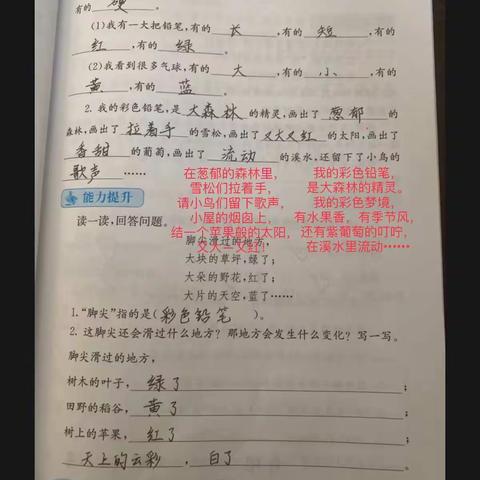 有的 硬 。
(1)我有一大把铅笔,有的 长 ,有的 短 ,有的
红 ,有的 绿 。
(2)我看到很多气球,有的 大 ,有的 小 ,有的
黄 ,有的 蓝 。
2.我的彩色铅笔,是 大森林 的精灵,画出了 葱郁 的
森林,画出了 拉着手 的雪松,画出了 又大又红 的太阳,画出了
香甜 的葡萄,画出了 流动 的溪水,还留下了小鸟的
歌声 ……
在葱郁的森林里, 我的彩色铅笔,
雪松们拉着手, 是大森林的精灵。
请小鸟们留下歌声, 我的彩色梦境,
小屋的烟囱上, 有水果香,有季节风,
结一个苹果般的太阳, 还有紫葡萄的叮咛,
又大—又红! 在溪水里流动……
能力提升
读一读,回答问题。
脚尖滑过的地方,
大块的草坪,绿了;
大朵的野花,红了;
大片的天空,蓝了……
1.“脚尖”指的是( 彩色铅笔 )。
2.这脚尖还会滑过什么地方?那地方会发生什么变化?写一写。
脚尖滑过的地方,
树木的叶子, 绿了 ;
田野的稻谷, 黄了 ;
树上的苹果, 红了 ;
天上的云彩 , 白了 。